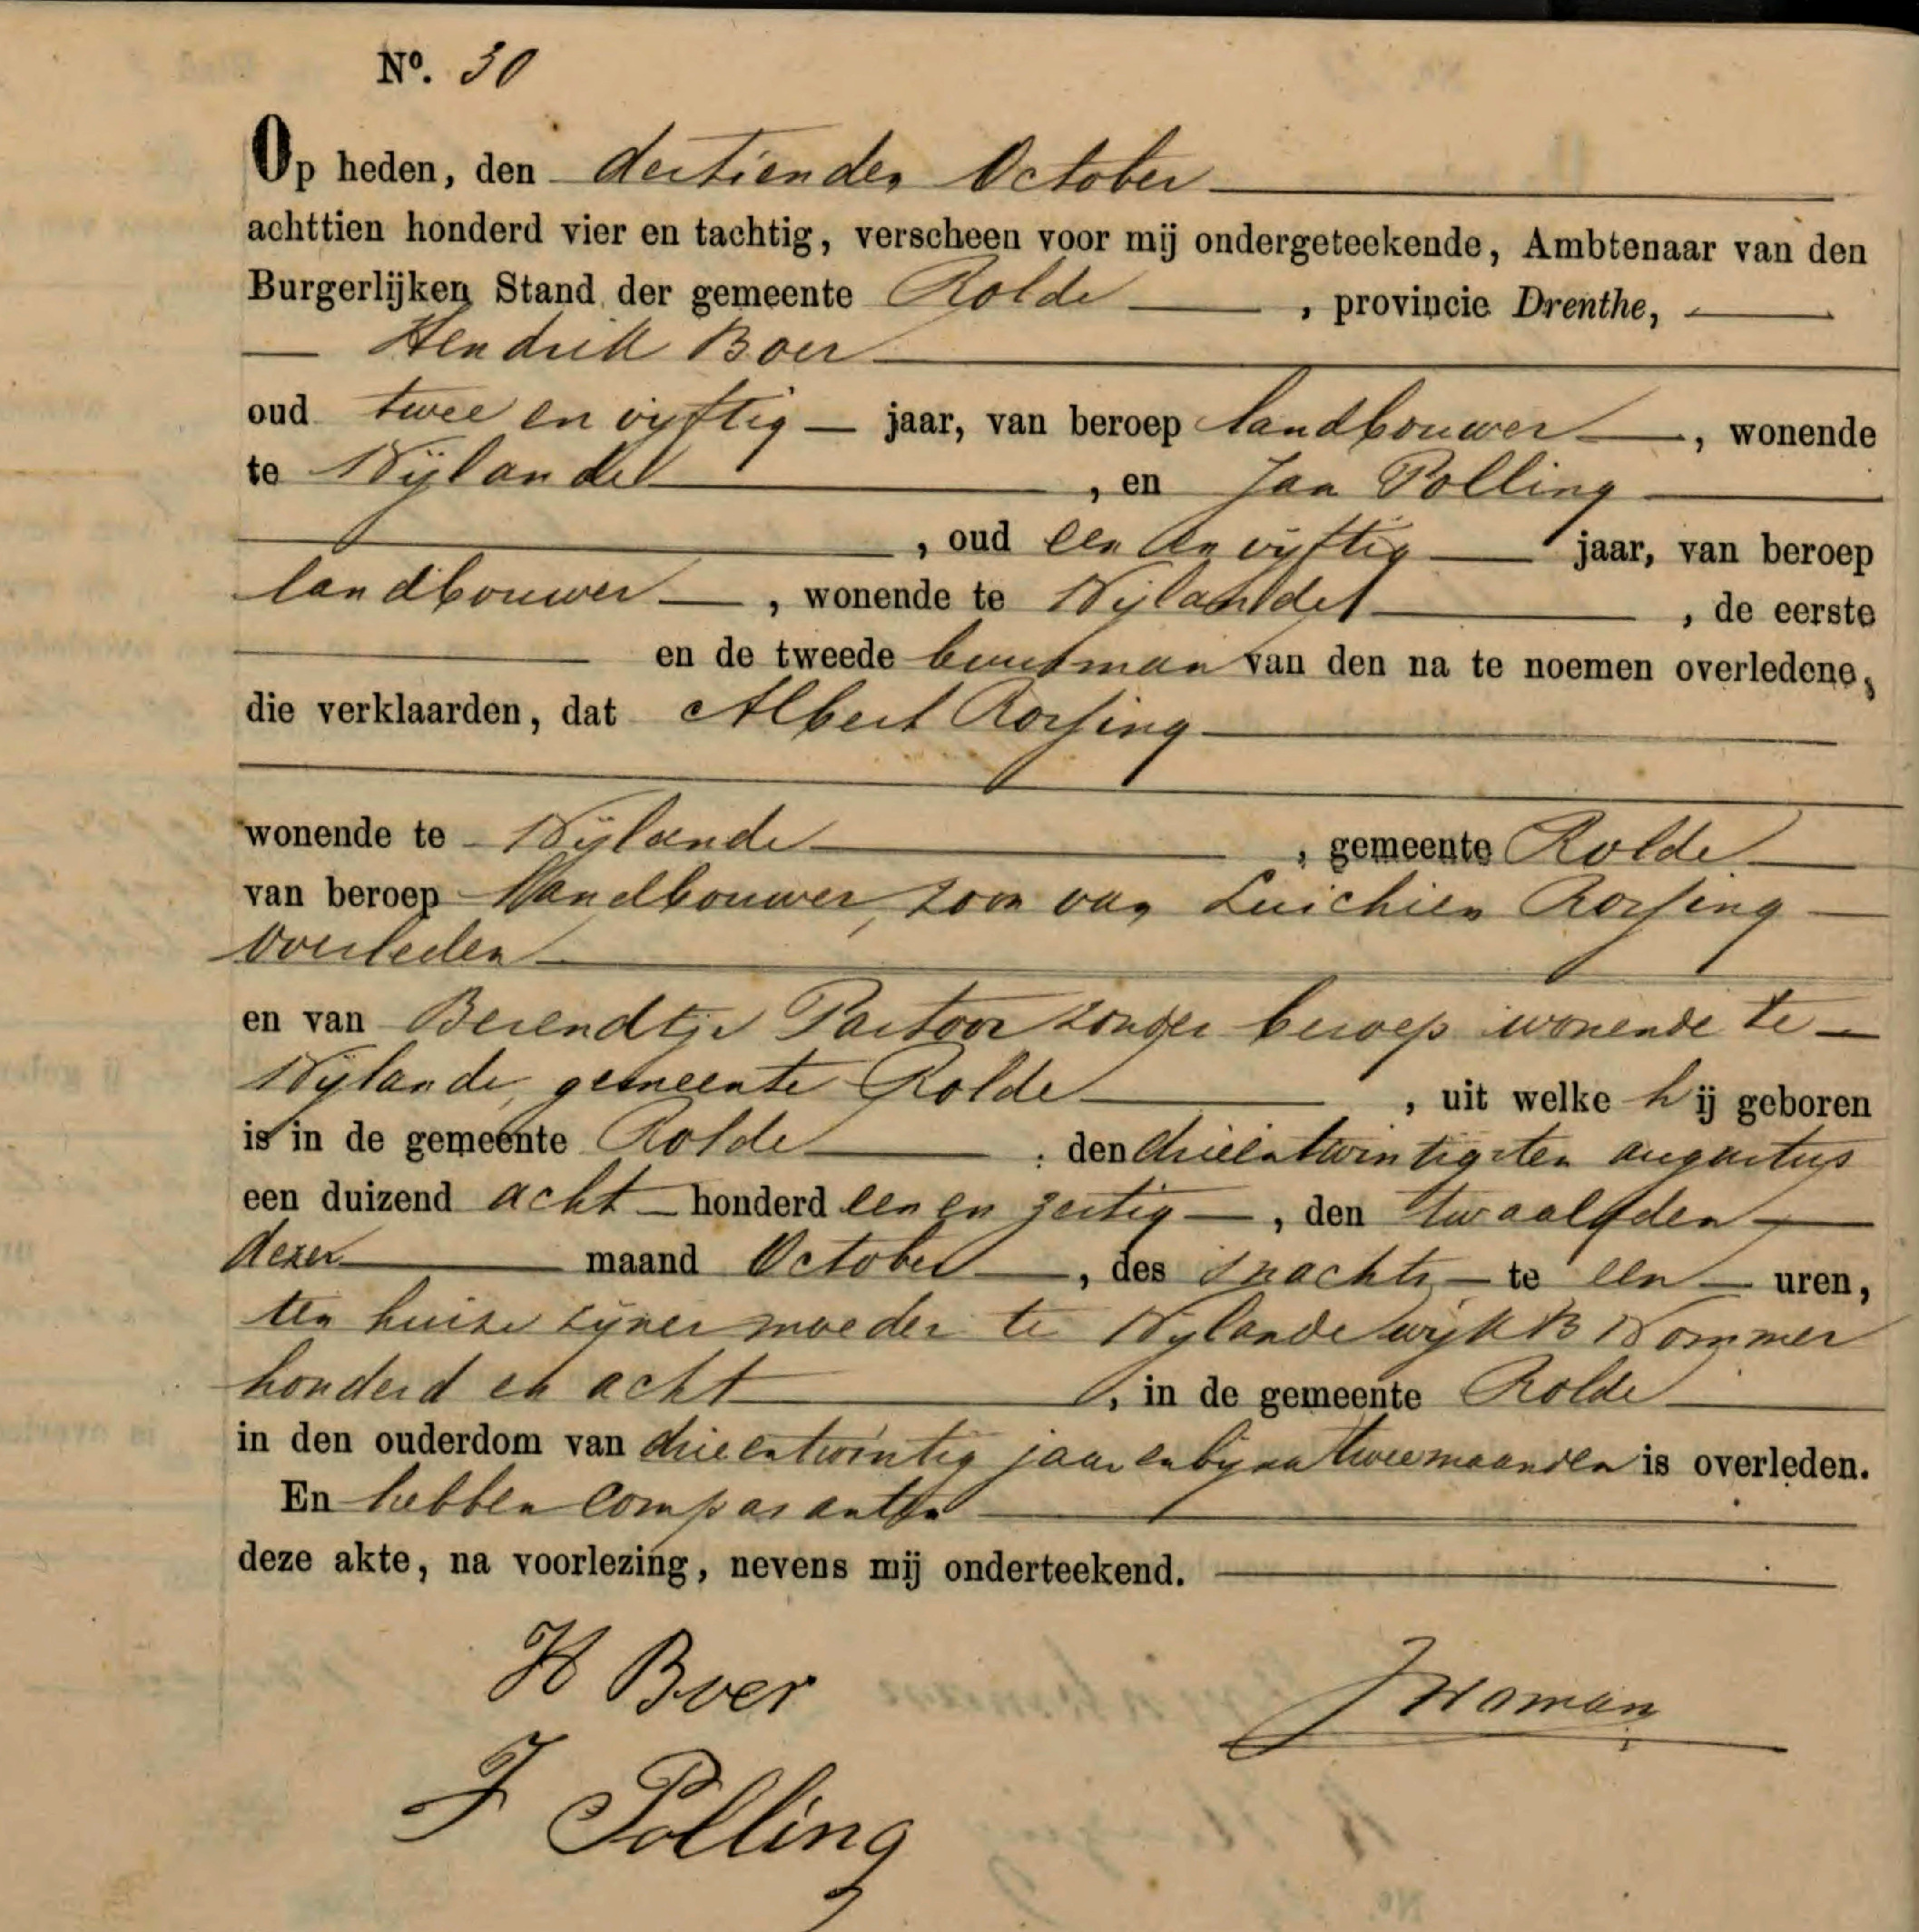 Nº. 30
Op heden, den dertienden October
achttien honderd vier en tachtig, verscheen voor mij ondergeteekende, Ambtenaar van den
Burgerlijken Stand der gemeente Rolde, provincie Drenthe,
Hendrik Boer
oud twee en vijftig jaar, van beroep landbouwer, wonende
te Nijlande, en Jan Polling
, oud een en vijftig jaar, van beroep
landbouwer, wonende te Nijlande, de eerste
en de tweede buurman van den na te noemen overledene,
die verklaarden, dat Albert Rossing
wonende te Nijlande, gemeente Rolde
van beroep landbouwer, zoon van Luichien Rossing
overleden
en van Berendtje Pastoor zonder beroep wonende te
Nijlande, gemeente Rolde, uit welke hij geboren
is in de gemeente Rolde, den drieentwintigsten augustus
een duizend acht honderd een en zestig, den twaalfden
dezer maand October, des snachts te een uren,
ten huize zijner moeder te Nijlande wijk B Nommer
honderd en acht, in de gemeente Rolde
in den ouderdom van drieentwintig jaar en bijna twee maanden is overleden.
En hebben comparanten
deze akte, na voorlezing, nevens mij onderteekend.
H Boer
JHoman
J Polling